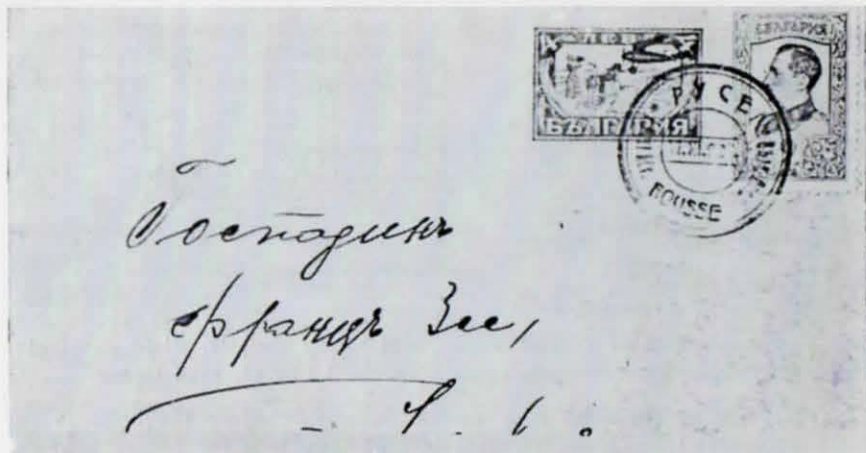 БЪЛГАРИЯ
БЪЛГАРИЯ
РУСЕ
ROUSSE
Господинъ
Францъ Зее,